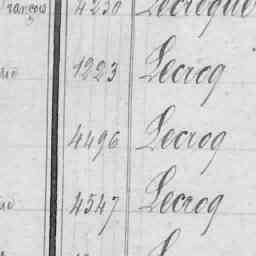 François 4250 Lecreque
1223 Lecroq
4496 Lecroq
4547 Lecroq